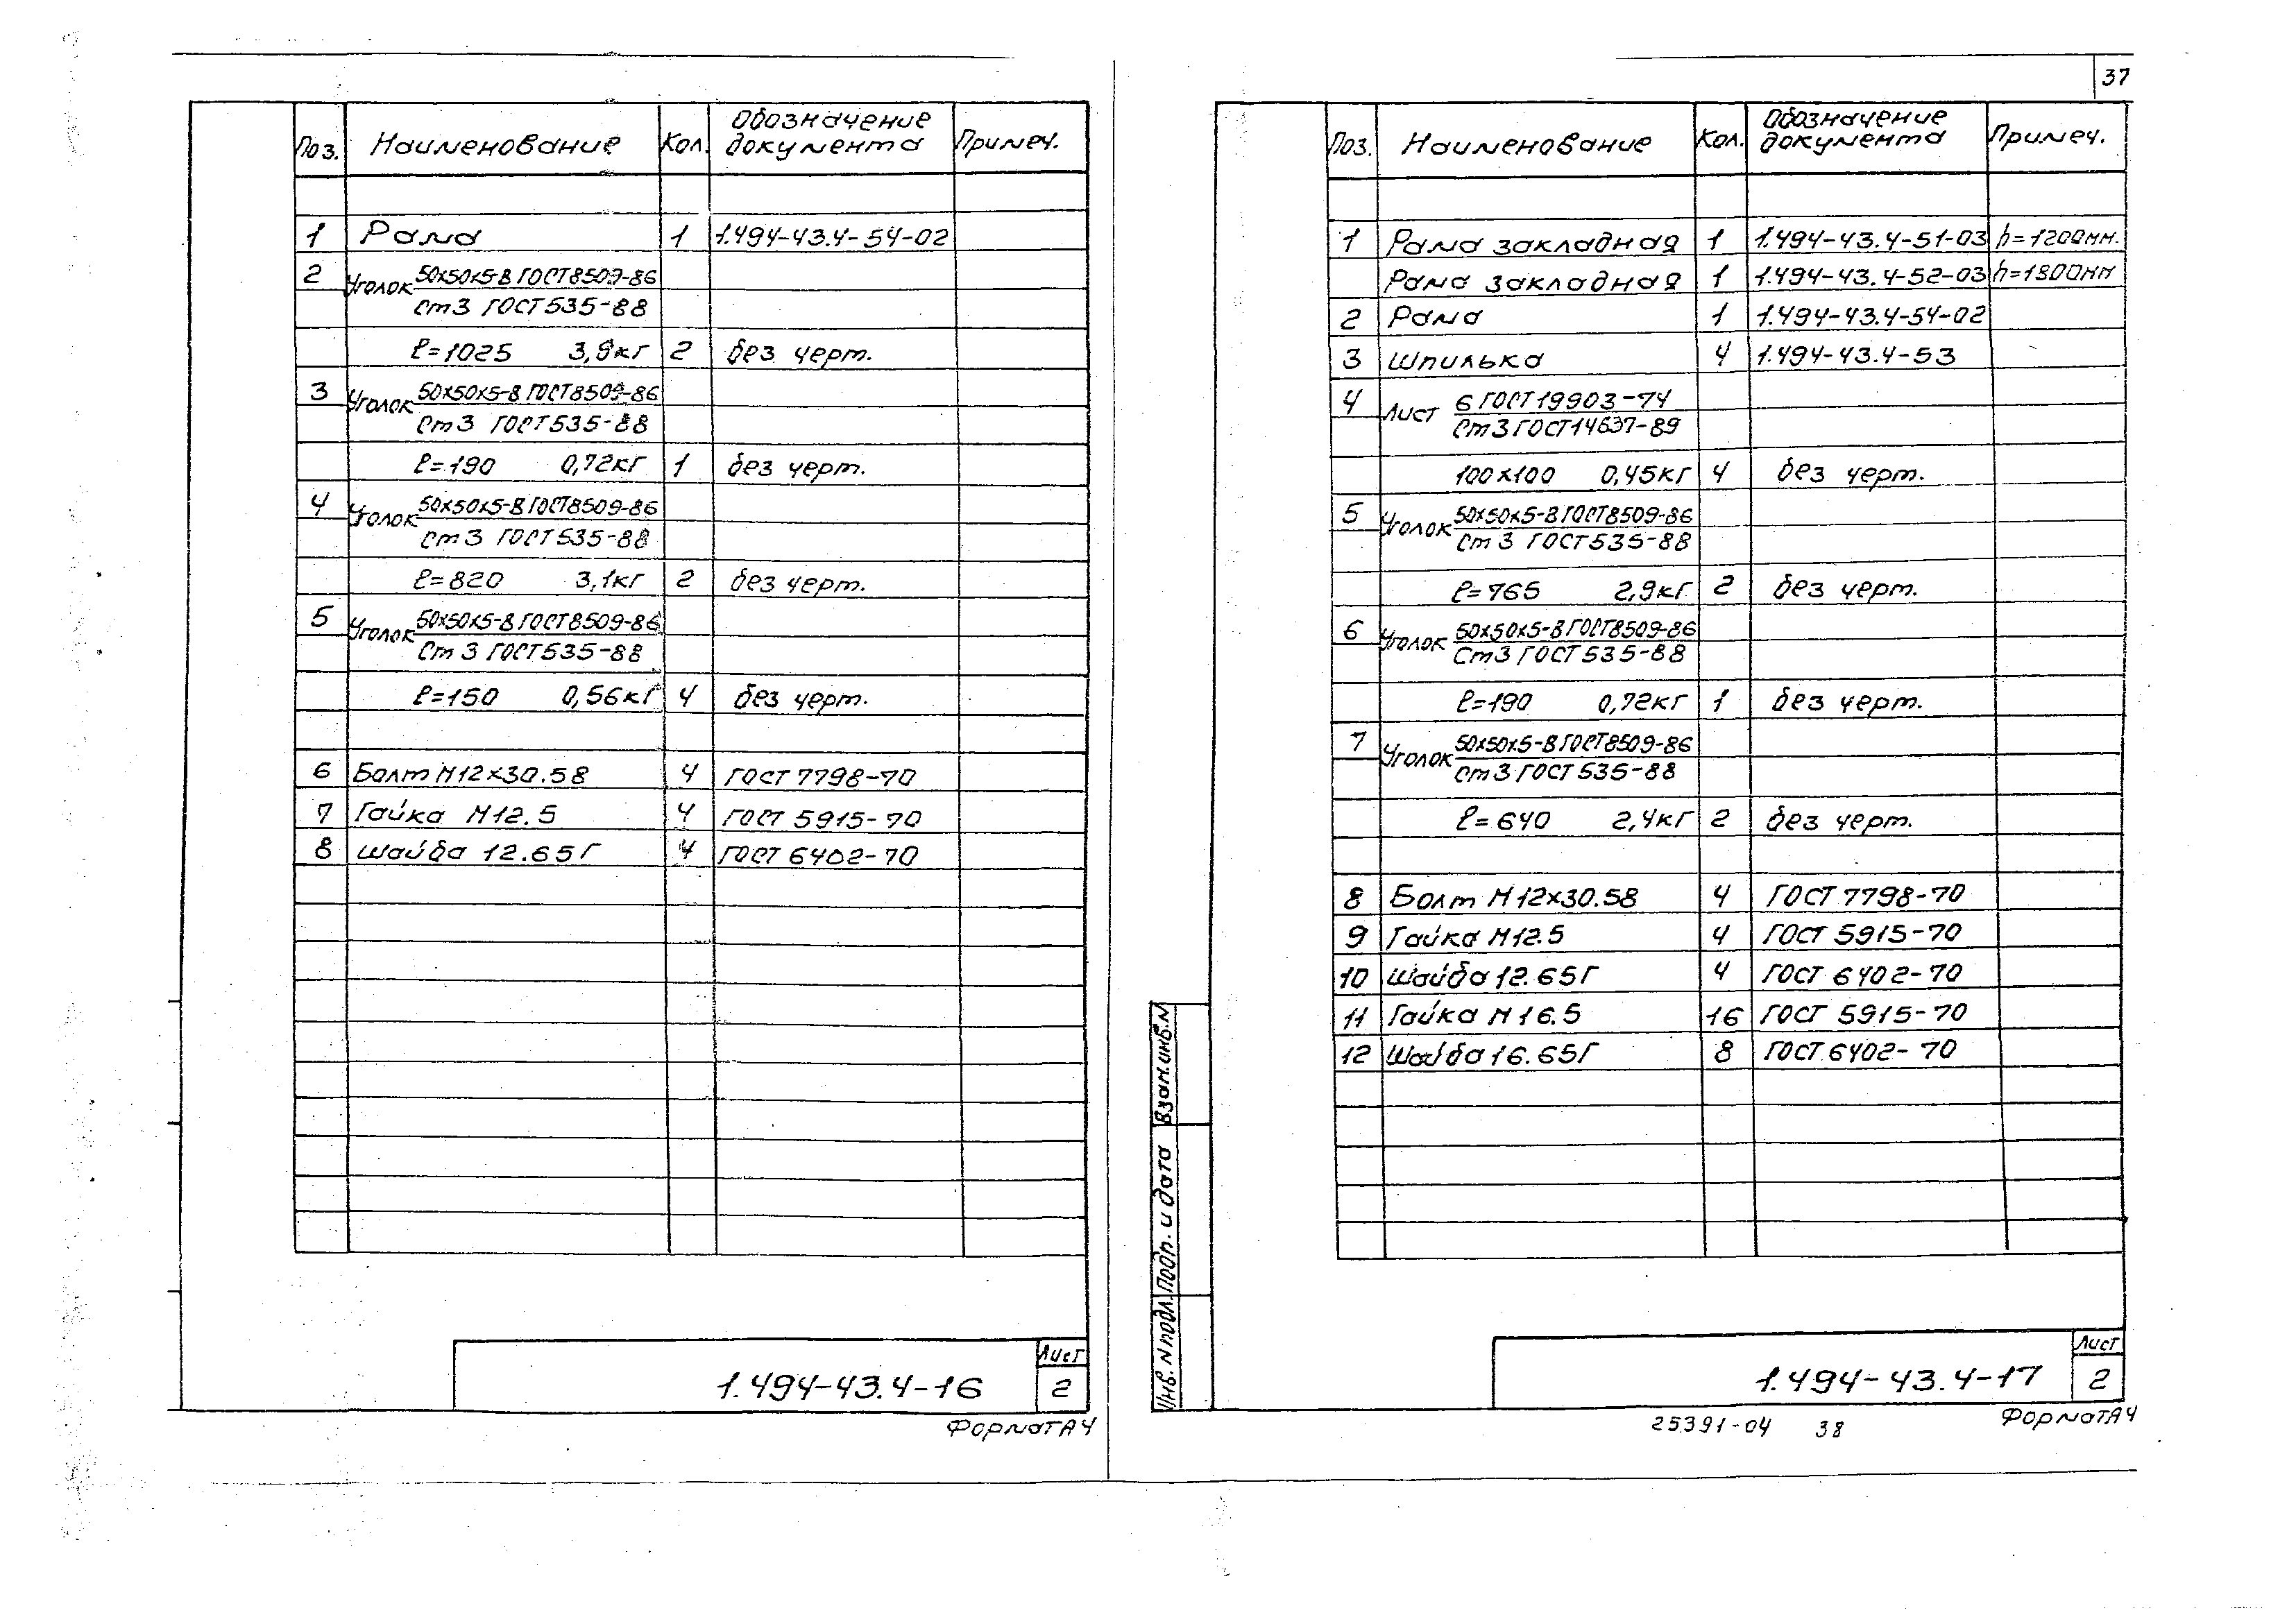 37
Поз. Наименование Кол. Обозначение документа Примеч.
1 Рама 1 1.494-43.4-54-02
2 Уголок 50х50х5-В ГОСТ8509-86
Ст3 ГОСТ535-88
ℓ=1025 3,9кг 2 без черт.
3 Уголок 50х50х5-В ГОСТ8509-86
Ст3 ГОСТ535-88
ℓ=190 0,72кг 1 без черт.
4 Уголок 50х50х5-В ГОСТ8509-86
Ст3 ГОСТ535-88
ℓ=820 3,1кг 2 без черт.
5 Уголок 50х50х5-В ГОСТ8509-86
Ст3 ГОСТ535-88
ℓ=150 0,56кг 4 без черт.
6 Болт М12х30.58 4 ГОСТ 7798-70
7 Гайка М12.5 4 ГОСТ 5915-70
8 Шайба 12.65Г 4 ГОСТ 6402-70
1.494-43.4-16
Лист
2
Формат А4
Поз. Наименование Кол. Обозначение документа Примеч.
1 Рама закладная 1 1.494-43.4-51-03 h=1200мм.
Рама закладная 1 1.494-43.4-52-03 h=1800мм
2 Рама 1 1.494-43.4-54-02
3 Шпилька 4 1.494-43.4-53
4 Лист 6 ГОСТ19903-74
Ст3 ГОСТ14637-89
100х100 0,45кг 4 без черт.
5 Уголок 50х50х5-В ГОСТ8509-86
Ст3 ГОСТ535-88
ℓ=765 2,9кг 2 без черт.
6 Уголок 50х50х5-В ГОСТ8509-86
Ст3 ГОСТ535-88
ℓ=190 0,72кг 1 без черт.
7 Уголок 50х50х5-В ГОСТ8509-86
Ст3 ГОСТ535-88
ℓ=640 2,4кг 2 без черт.
8 Болт М12х30.58 4 ГОСТ 7798-70
9 Гайка М12.5 4 ГОСТ 5915-70
10 Шайба 12.65Г 4 ГОСТ 6402-70
11 Гайка М16.5 16 ГОСТ 5915-70
12 Шайба 16.65Г 8 ГОСТ 6402-70
Инв. N подл. Подр. и дата Взам.инв.N
1.494-43.4-17
Лист
2
25391-04 38
Формат А4